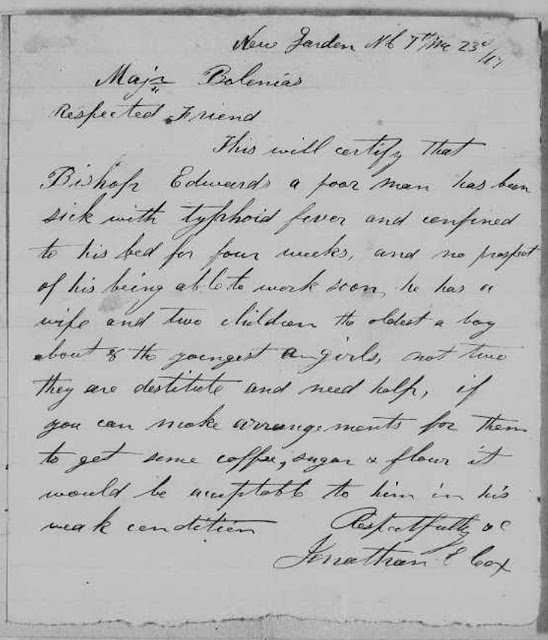 New Garden NC 7th Mo 23d /67
Majr Bolenias
Respected Friend
This will certify that
Bishop Edwards a poor man has been
sick with typhoid fever and confined
to his bed for four weeks, and no prospect
of his being able to work soon, he has a
wife and two children the oldest a boy
about 8 the youngest a girls, not two
they are destitute and need help, if
you can make arrangements for them
to get some coffee, sugar & flour it
would be acceptable to him in his
weak condition Respectfully &c
Jonathan E Cox